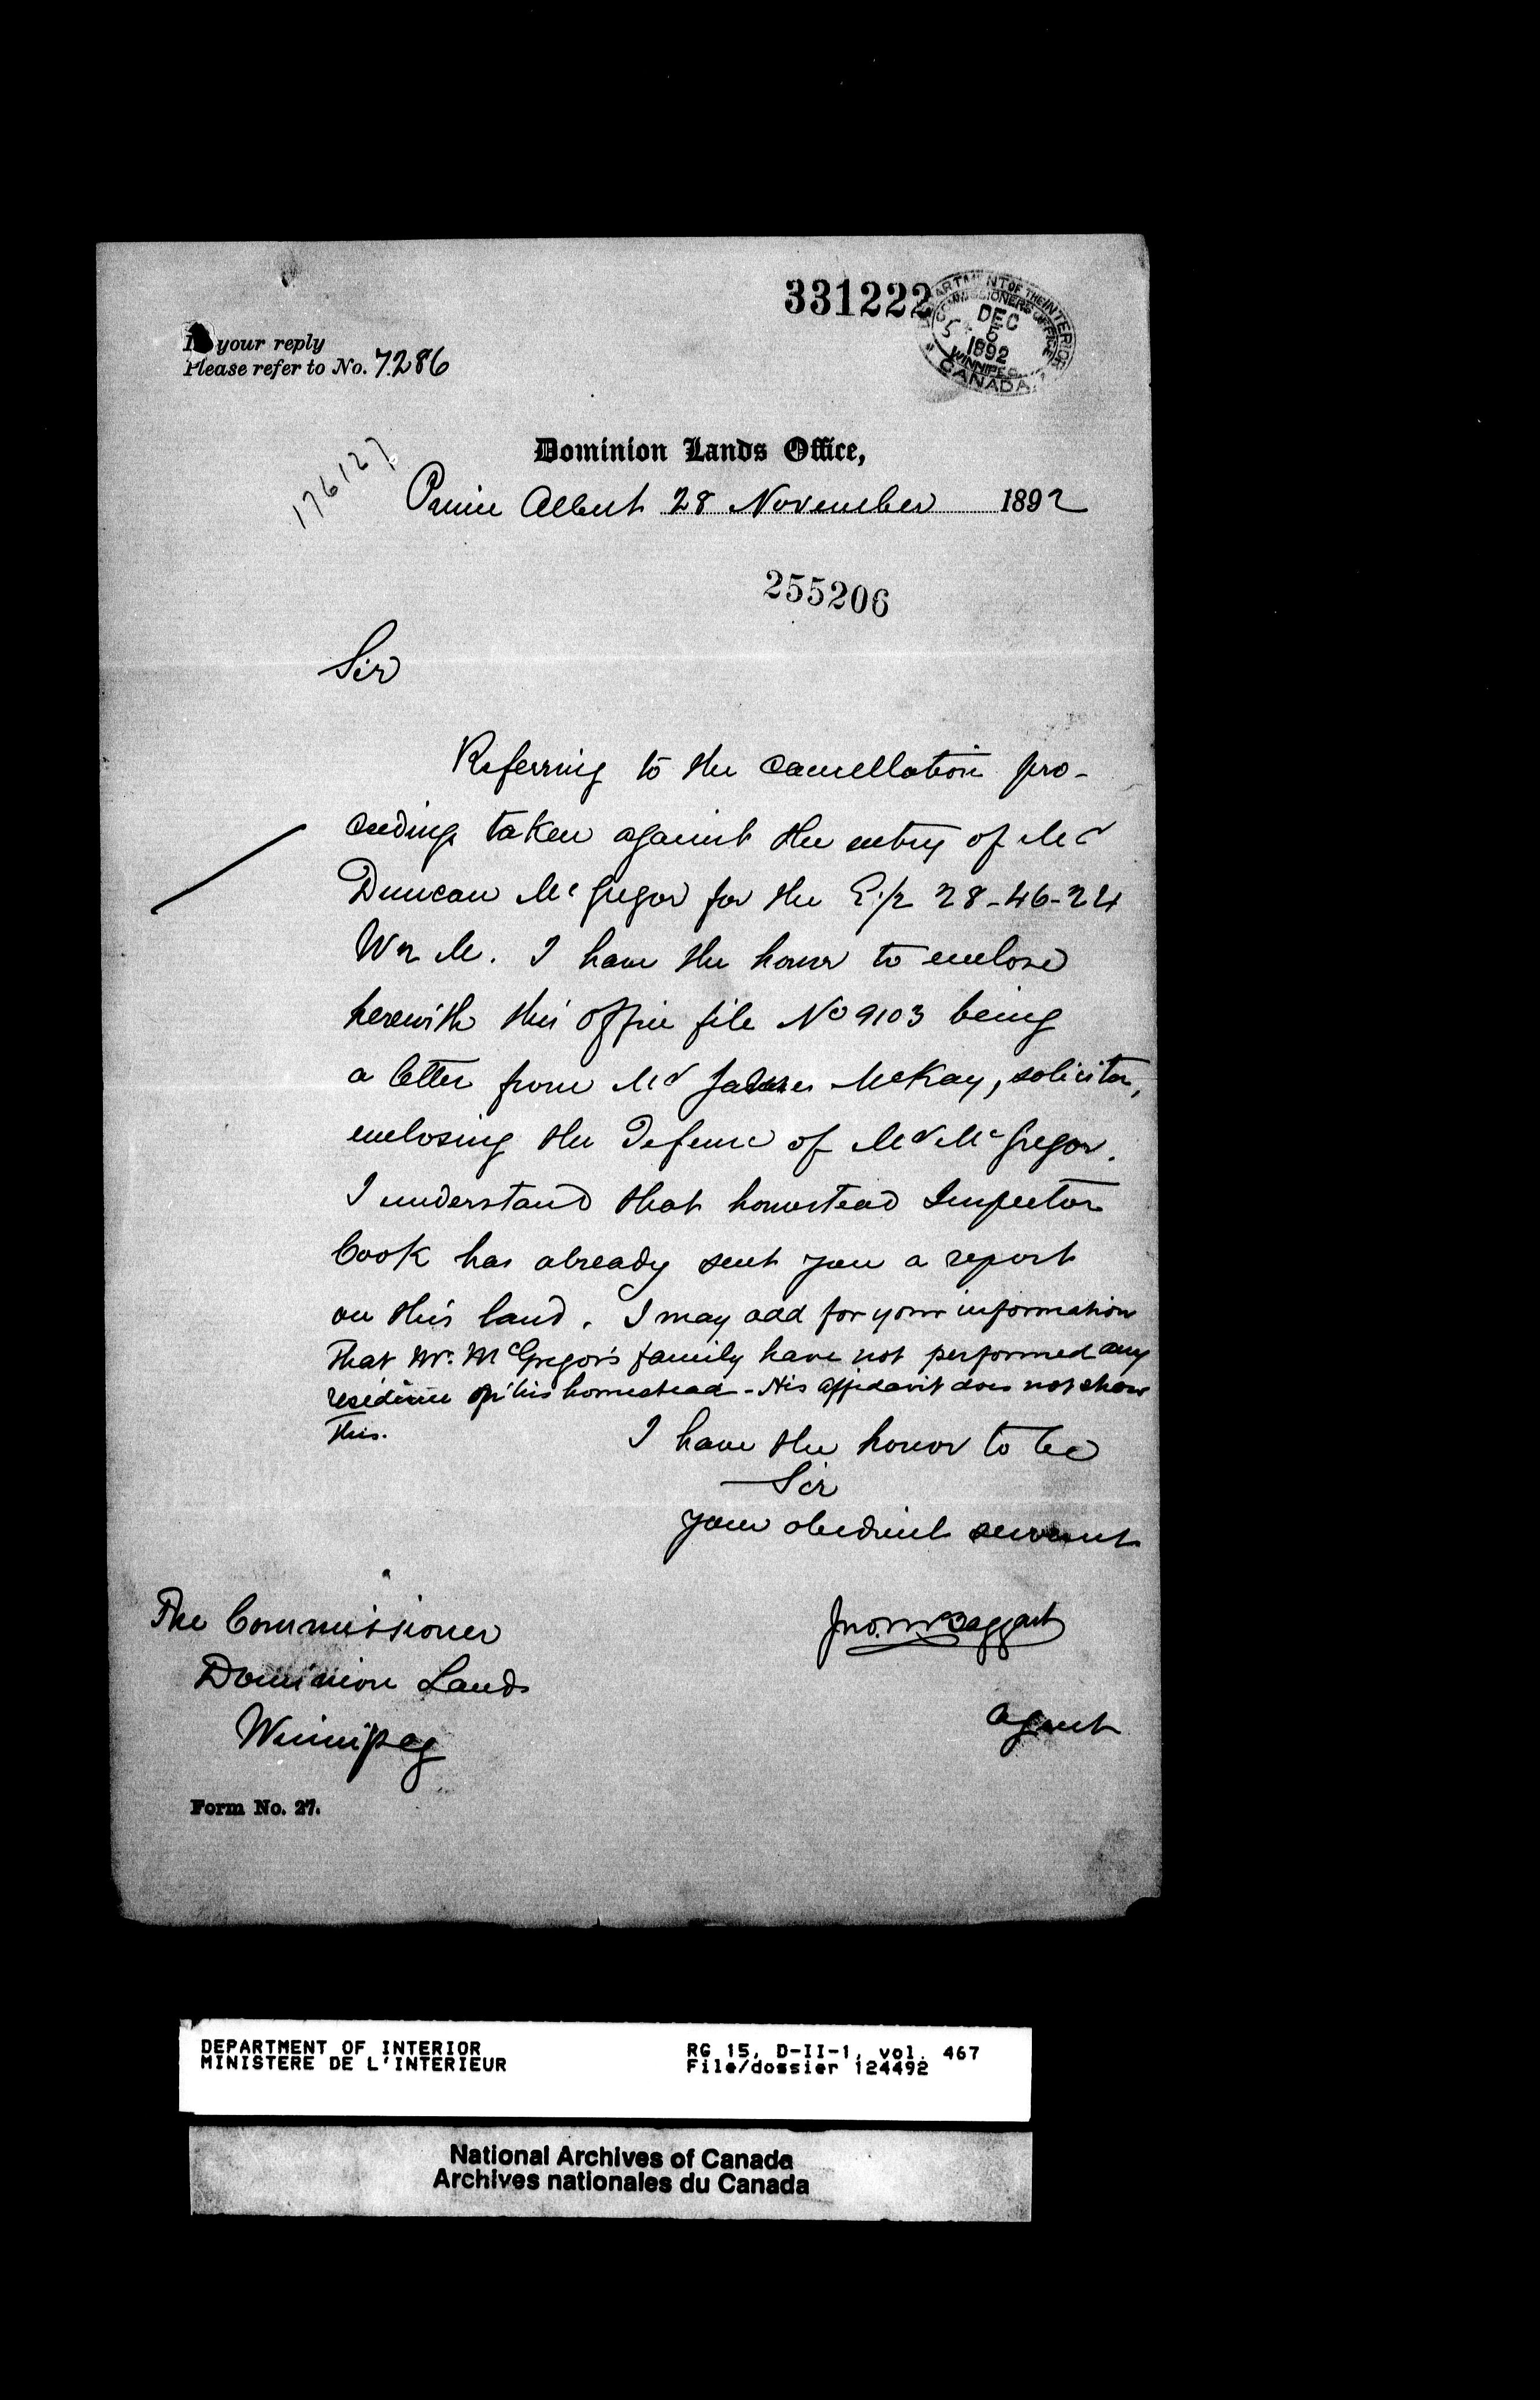 331222
DEPARTMENT OF THE INTERIOR
COMMISSIONERS OFFICE
DEC
5
1892
WINNIPEG
CANADA
In your reply
Please refer to No. 7286
176127
Dominion Lands Office,
Prince Albert 28 November 1892
255206
Sir
Referring to the cancellation pro-
ceedings taken against the entry of Mr
Duncan McGregor for the E.1/2 28-46-24
W2M. I have the honor to enclose
herewith this office file No 9103 being
a letter from Mr James McKay, solicitor,
enclosing the Defence of Mr McGregor.
I understand that homestead Inspector
Cook has already sent you a report
on this land. I may add for your information
that Mr. McGregor's family have not performed any
residence on his homestead - His affidavit does not show
this.
I have the honor to be
Sir
your obedient servant
Jno. McTaggart
Agent
The Commissioner
Dominion Lands
Winnipeg
Form No. 27.
DEPARTMENT OF INTERIOR
MINISTERE DE L'INTERIEUR
RG 15, D-II-1, vol. 467
File/dossier 124492
National Archives of Canada
Archives nationales du Canada